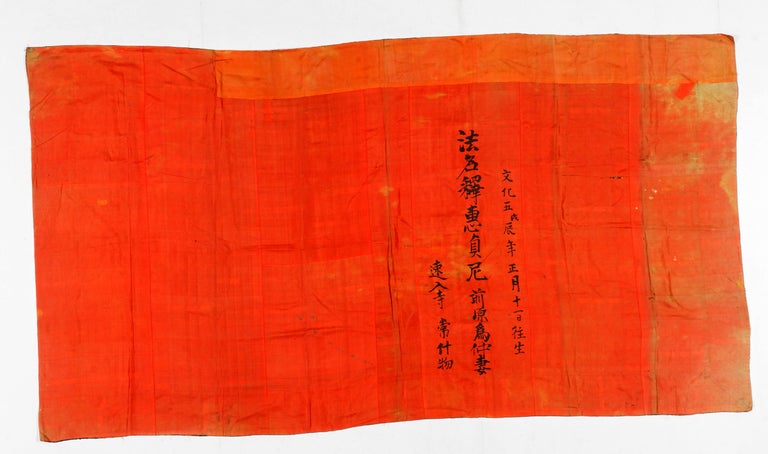 文化五戊辰年 正月十一日往生
法名釋惠貞尼 前原為仕妻
速入寺 常什物